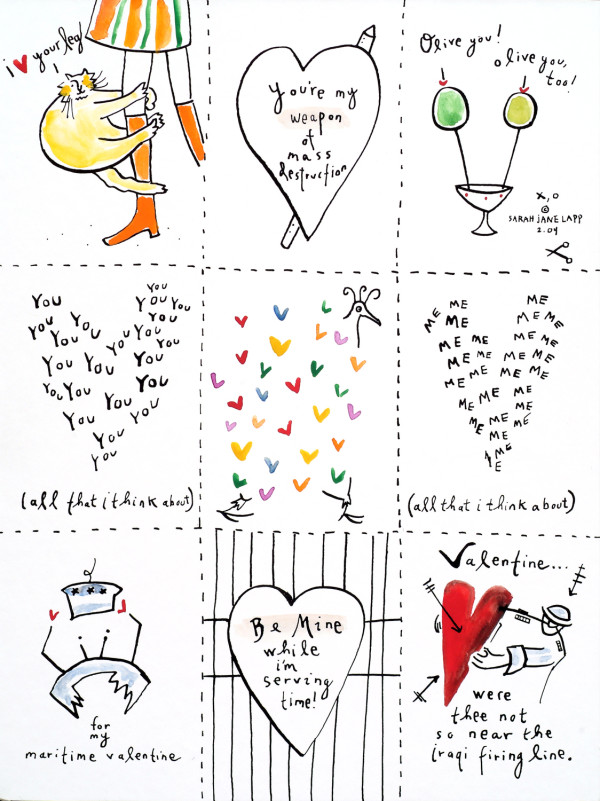 i ♥ your leg!
You're my
weapon
of
mass
destruction
Olive you!
olive you,
too!
x,o
©
SARAH JANE LAPP
2.04
You
You You You
You You You
You You You
You You You
You You You
You You You
You You You
You You
You
ME ME
ME ME ME ME
ME ME ME ME
ME ME ME ME ME
ME ME ME ME
ME ME ME
ME ME
ME
ME
ME
(all that i think about)
(all that i think about)
for
my
maritime valentine
Be Mine
while
i'm
serving
time!
Valentine...
were
thee not
so near the
iraqi firing line.